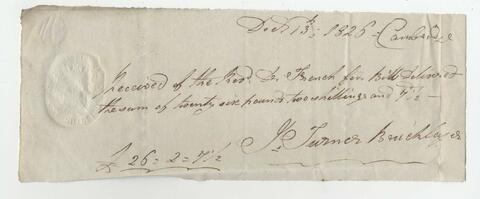 Decr 13th 1826 Cambridge
Received of the Revd Dr French for Bill Delivered
the sum of twenty six pounds two shillings and 7½ —
Jo Turner Bricklayer
£ 26 = 2 = 7½